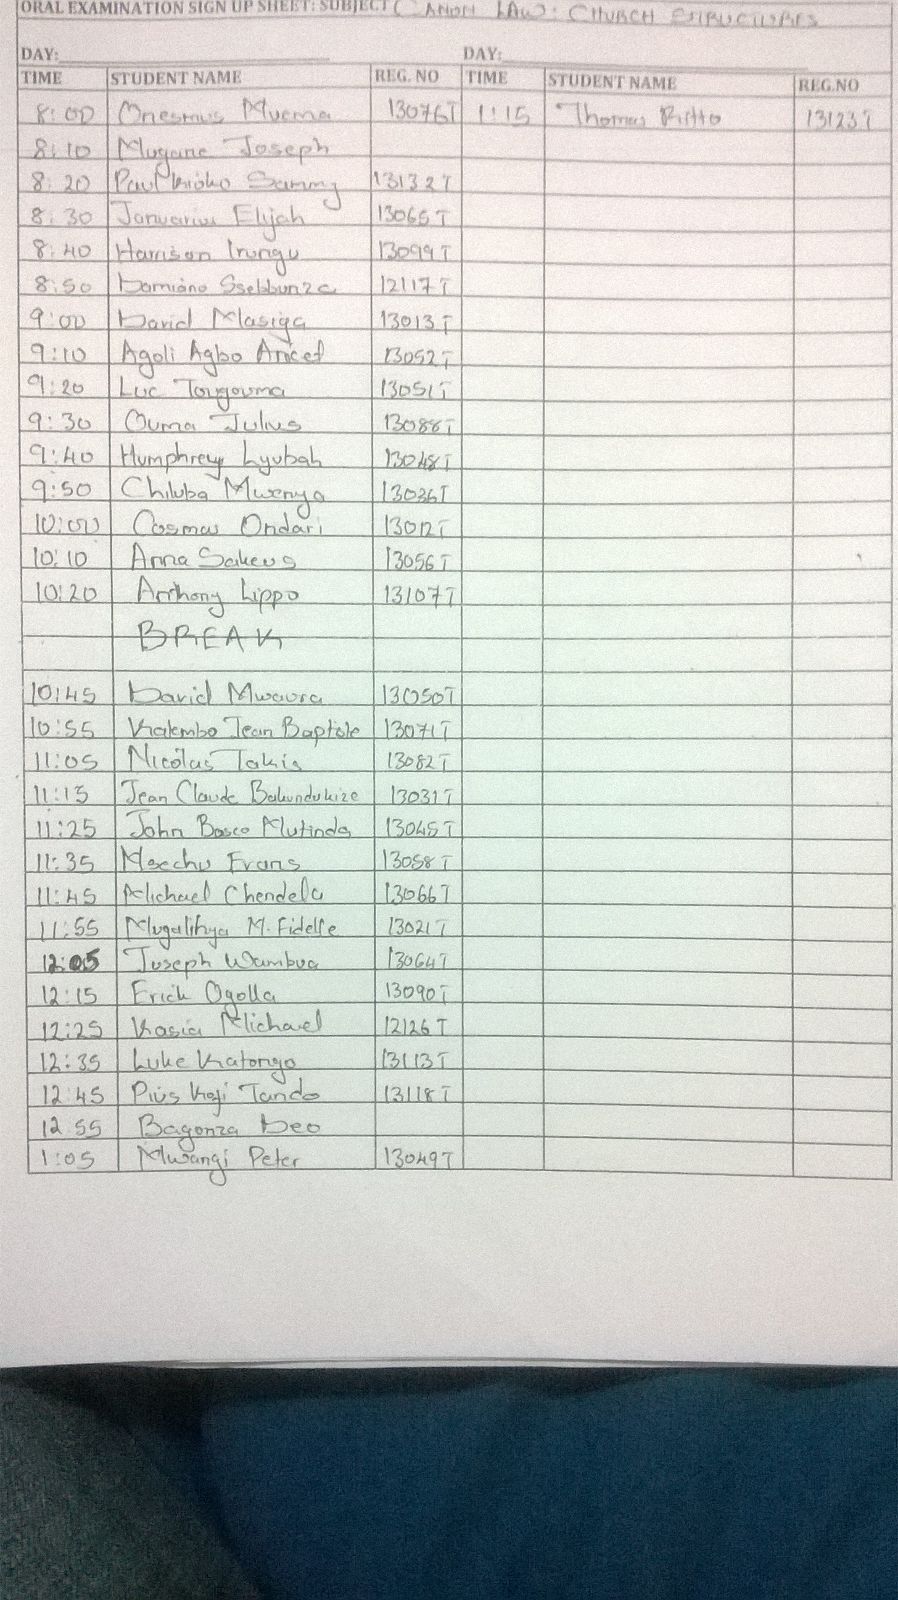 ORAL EXAMINATION SIGN UP SHEET: SUBJECT ( CANON LAW: CHURCH STRUCTURES
DAY: DAY:
TIME STUDENT NAME REG. NO TIME STUDENT NAME REG.NO
8:00 Onesmus Muema 13076T 1:15 Thomas Ritto 13123T
8:10 Mugane Joseph
8:20 Paul Kioko Sammy 13132T
8:30 Januarius Elijah 13065T
8:40 Harrison Irungu 13099T
8:50 Damiano Ssebbunza 12117T
9:00 David Masiga 13013T
9:10 Agoli Agbo Anicet 13052T
9:20 Luc Tougouma 13051T
9:30 Ouma Julius 13088T
9:40 Humphrey Lyubah 13048T
9:50 Chiluba Mwenya 13036T
10:00 Cosmas Ondari 13012T
10:10 Anna Sakeus 13056T
10:20 Anthony Lippo 13107T
BREAK
10:45 David Mwaura 13050T
10:55 Kalembo Jean Baptiste 13071T
11:05 Nicolas Takis 13082T
11:15 Jean Claude Bakundukize 13031T
11:25 John Bosco Mutinda 13045T
11:35 Maechu Evans 13058T
11:45 Michael Chendela 13066T
11:55 Mugalihya M. Fidelle 13021T
12:05 Joseph Wambua 13064T
12:15 Erick Ogolla 13090T
12:25 Kasia Michael 12126T
12:35 Luke Katongo 13113T
12:45 Pius Koji Tando 13118T
12.55 Bagonza Deo
1:05 Mwangi Peter 13049T